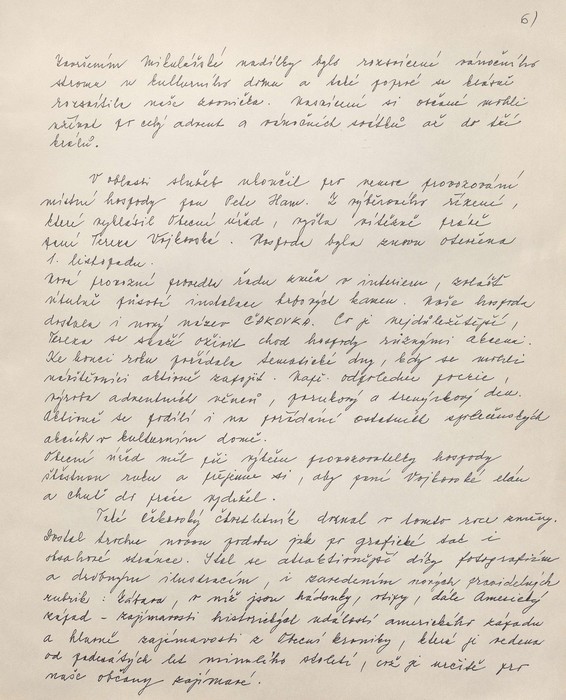 6)
Završením Mikulášské nadílky bylo rozsvícené vánočního
stromu v kulturního domu a také poprvé se krásně
rozsvítila naše zvonička. Nasvícení si občané mohli
užívat po celý advent a vánočních svátků až do tří
králů.
V oblasti služeb ukončil pro nemoc provozování
místní hospody pan Petr Ham. Z výběrového řízení,
které vyhlásil Obecní úřad, vyšla vítězně právě
paní Tereza Vojkovská. Hospoda byla znovu otevřena
1. listopadu.
Nové provozní provedla řadu změn v interieru, zvlášť
útulně působí instalace krbových kamen. Naše hospoda
dostala i nový název ČAKOVKA. Co je nejdůležitější,
Tereza se snaží oživit chod hospody různými akcemi.
Ke konci roku pořádala tematické dny, kdy se mohli
návštěvníci aktivně zapojit. Např. odpoledne poezie,
výroba adventních věnců, punčový a trenýrkový den.
Aktivně se podílí i na pořádání ostatních společenských
akcích v kulturním domě.
Obecní úřad měl při výběru provozovatelky hospody
šťastnou ruku a přejeme si, aby paní Vojkovské elán
a chuť do práce vydržel.
Také čakovský čtvrtletník doznal v tomto roce změny.
Dostal trochu novou podobu jak po grafické tak i
obsahové stránce. Stal se atraktivnější díky fotografiím
a drobným ilustracím, i zavedením nových pravidelných
rubrik: Zábava, v níž jsou hádanky, vtipy, dále Americký
západ - zajímavosti historických událostí amerického západu
a hlavně zajímavosti z Obecní kroniky, která je vedena
od padesátých let minulého století, což je určitě pro
naše občany zajímavé.